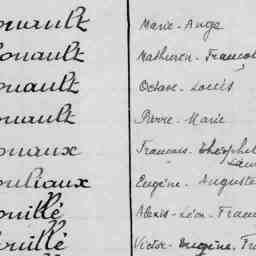 ouault Marie - Ange
ouault Mathurin - Franço
ouault Octave - Louis
ouault Pierre - Marie
onaux François - Théophil
ouliaux Eugène - Auguste
ouillé Alexis - Léon - Fran
ouillé Victor - Eugène, Fr